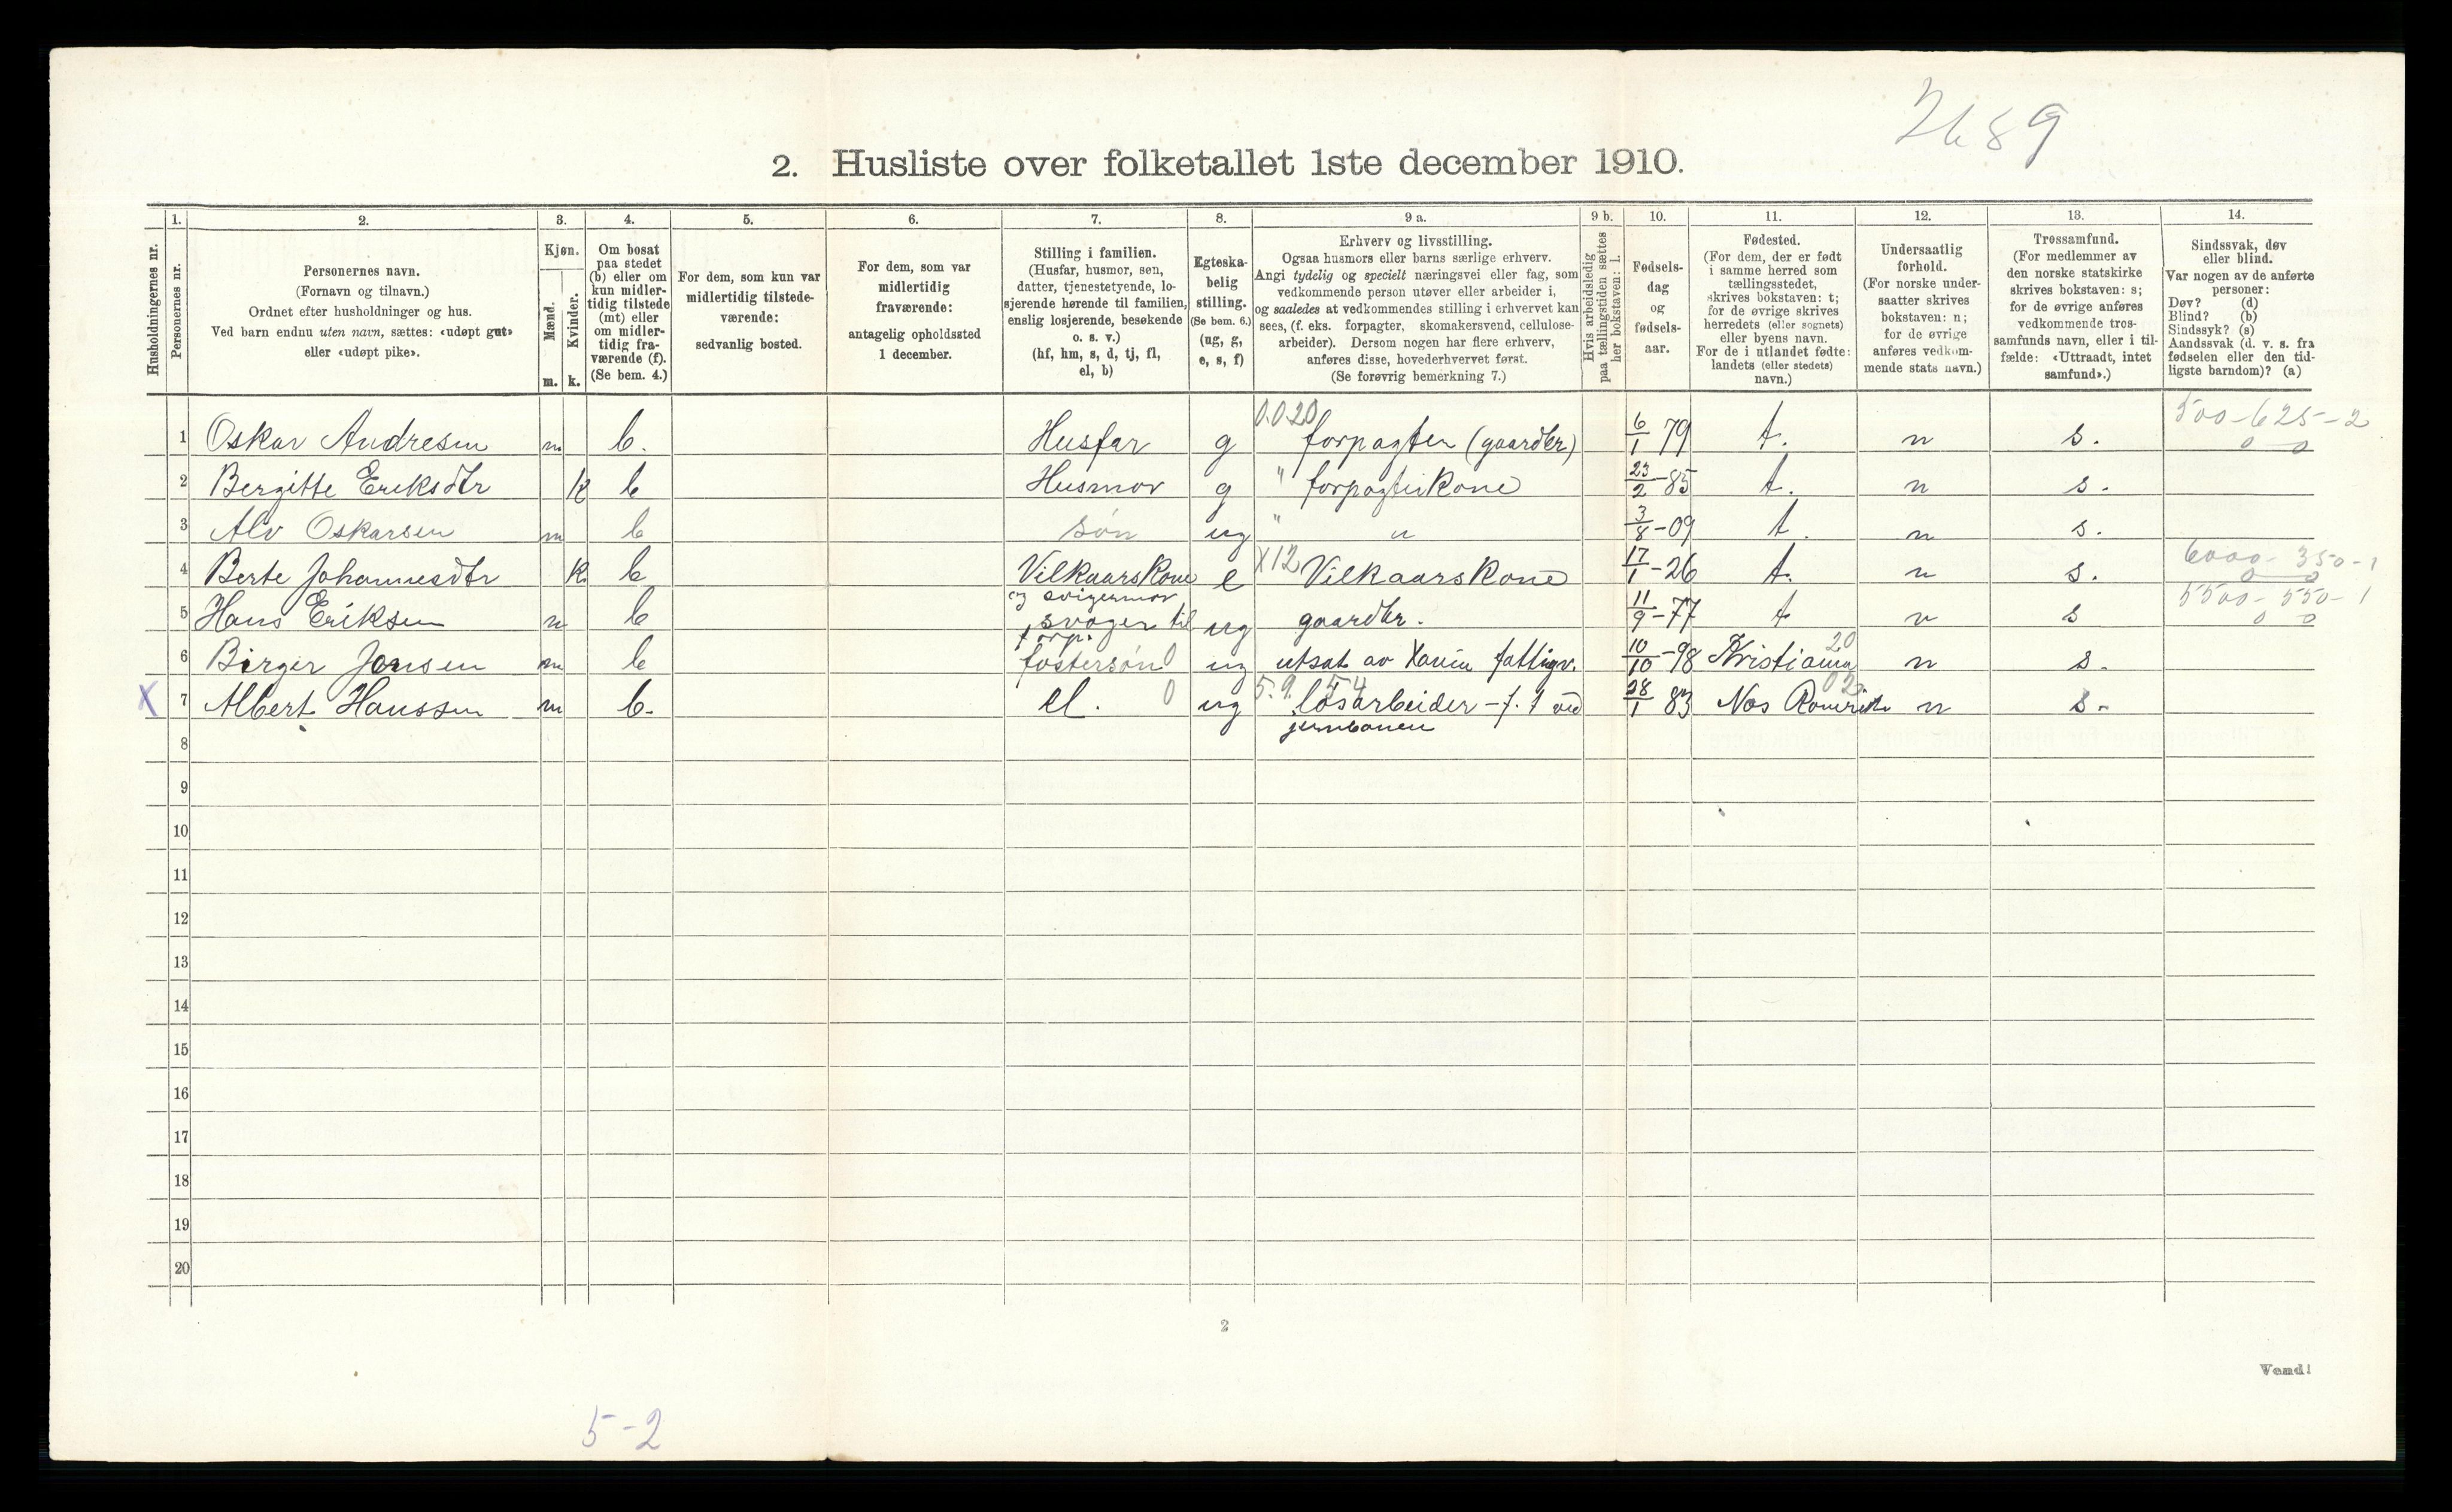 2689
2. Husliste over folketallet 1ste december 1910.
Husholdningernes nr.
1. Personernes nr.
2. Personernes navn.
(Fornavn og tilnavn.)
Ordnet efter husholdninger og hus.
Ved barn endnu uten navn, sættes: «udøpt gut»
eller «udøpt pike».
3. Kjøn.
Mænd. m.
Kvinder. k.
4. Om bosat
paa stedet
(b) eller om
kun midler-
tidig tilstede
(mt) eller
om midler-
tidig fra-
værende (f).
(Se bem. 4.)
5. For dem, som kun var
midlertidig tilstede-
værende:
sedvanlig bosted.
6. For dem, som var
midlertidig
fraværende:
antagelig opholdssted
1 december.
7. Stilling i familien.
(Husfar, husmor, søn,
datter, tjenestetyende, lo-
sjerende hørende til familien,
enslig losjerende, besøkende
o. s. v.)
(hf, hm, s, d, tj, fl,
el, b)
8. Egteska-
belig
stilling.
(Se bem. 6.)
(ug, g,
e, s, f)
9 a. Erhverv og livsstilling.
Ogsaa husmors eller barns særlige erhverv.
Angi tydelig og specielt næringsvei eller fag, som
vedkommende person utøver eller arbeider i,
og saaledes at vedkommendes stilling i erhvervet kan
sees, (f. eks. forpagter, skomakersvend, cellulose-
arbeider). Dersom nogen har flere erhverv,
anføres disse, hovederhvervet først.
(Se forøvrig bemerkning 7.)
9 b. Hvis arbeidsledig
paa tællingstiden sættes
her bokstaven: l.
10. Fødsels-
dag
og
fødsels-
aar.
11. Fødested.
(For dem, der er født
i samme herred som
tællingsstedet,
skrives bokstaven: t;
for de øvrige skrives
herredets (eller sognets)
eller byens navn.
For de i utlandet fødte:
landets (eller stedets)
navn.)
12. Undersaatlig
forhold.
(For norske under-
saatter skrives
bokstaven: n;
for de øvrige
anføres vedkom-
mende stats navn.)
13. Trossamfund.
(For medlemmer av
den norske statskirke
skrives bokstaven: s;
for de øvrige anføres
vedkommende tros-
samfunds navn, eller i til-
fælde: «Uttraadt, intet
samfund».)
14. Sindssvak, døv
eller blind.
Var nogen av de anførte
personer:
Døv? (d)
Blind? (b)
Sindssyk? (s)
Aandssvak (d. v. s. fra
fødselen eller den tid-
ligste barndom)? (a)
0.0.20 500-625-2
1 Oskar Andresen m b. Husfar g forpagter (gaardbr) 6/1 79 t. n s. 0 0
2 Bergitte Eriksdtr k b Husmor g " forpagterkone 23/2-85 t. n s.
3 Alv Oskarsen m b søn ug " " 3/8-09 t. n s.
X12 6000-350-1
4 Berte Johannesdtr k. b Vilkaarskone e Vilkaarskone 17/1-26 t. n s. 0 0
og svigermor 5500-550-1
5 Hans Eriksen m b svoger til ug gaardbr. 11/9-77 t n s 0 0
forp. 20
6 Birger Jensen m b fostersøn 0 ug utsat av fattigv. 10/10-98 Kristiania n s.
5.9. 54 02
X 7 Albert Hanssen m b. el. 0 ug løsarbeider - f. t ved 28/1 83 Nes Romerike n s-
jernbanen
8
9
10
11
12
13
14
15
16
17
18
19
20
2
Vend!
5-2